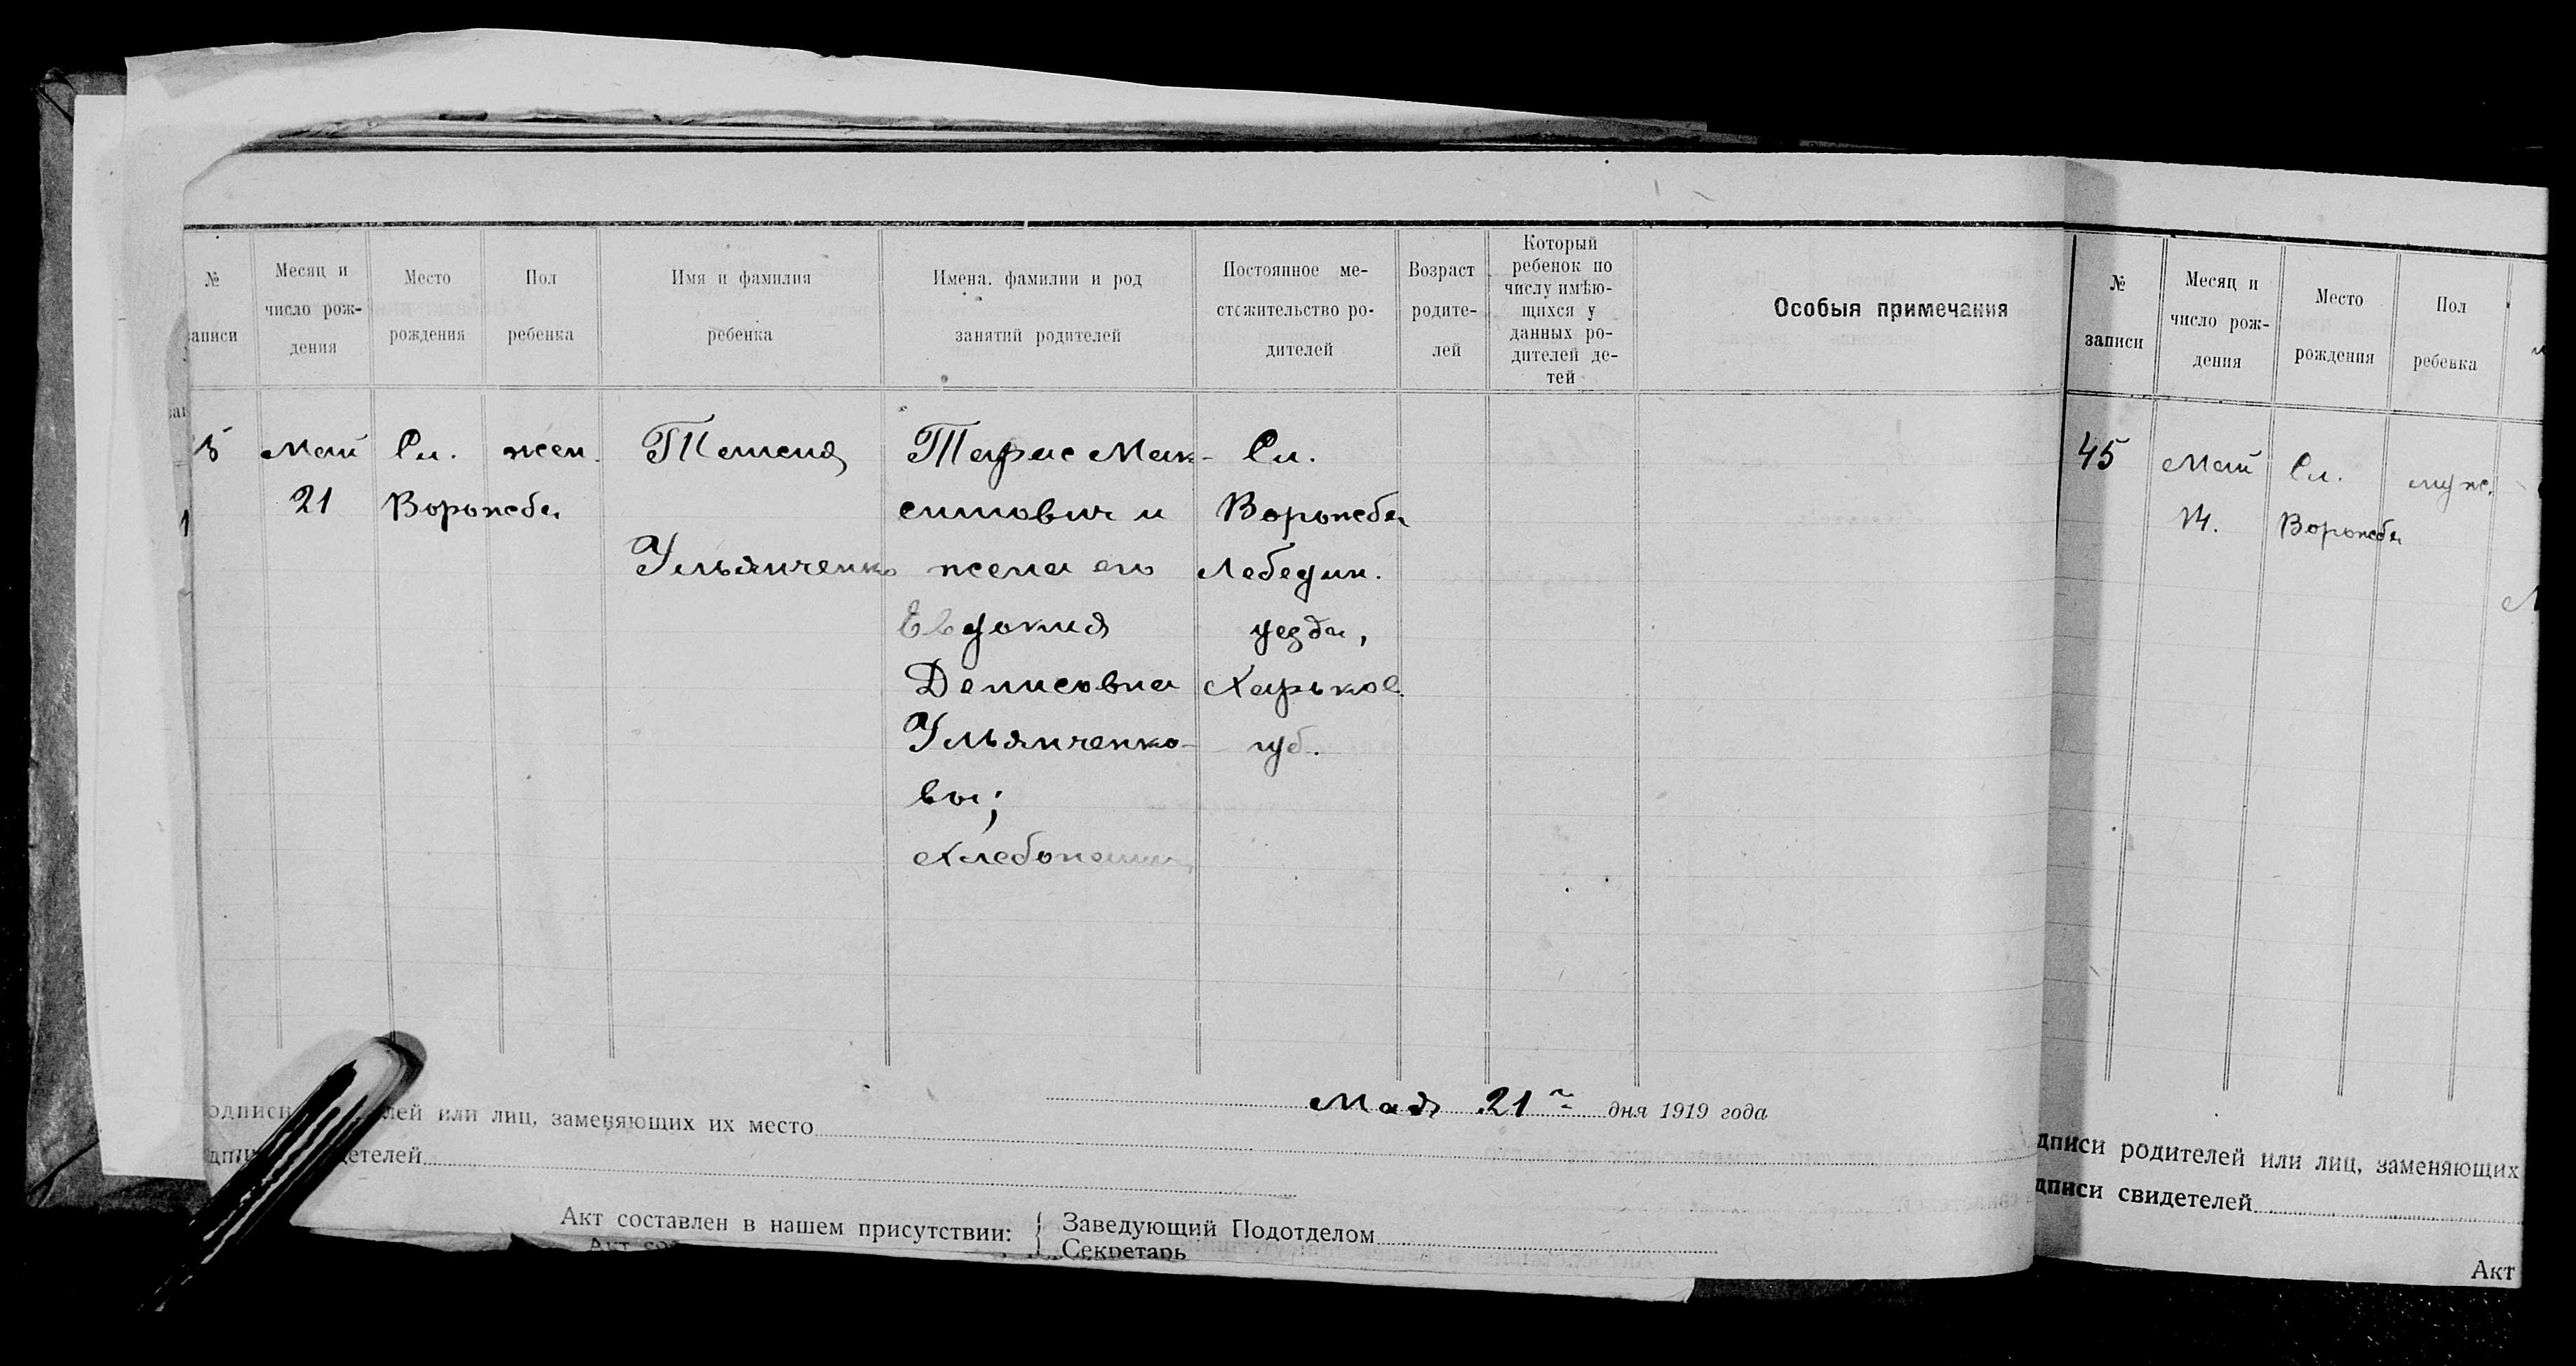 №
записи
Месяц и
число рож-
дения
Место
рождения
Пол
ребенка
Имя и фамилия
ребенка
Имена. фамилии и род
занятий родителей
Постоянное ме-
стожительство ро-
дителей
Возраст
родите-
лей
Который
ребенок по
числу имѣю-
щихся у
данных ро-
дителей де-
тей
Особыя примечания
5
Май
21
Сл.
Ворожба
жен.
Таисия
Ульянченко
Тарас Мак-
симович и
жена его
Евдокия
Денисовна
Ульянченко-
вы;
Хлебопашц.
Сл.
Ворожба
Лебедин.
уезда,
Харьков.
губ.
Мая 21 дня 1919 года
одписи лей или лиц, заменяющих их место
детелей
Акт составлен в нашем присутствии:
Заведующий Подотделом
Секретарь
№
записи
Месяц и
число рож-
дения
Место
рождения
Пол
ребенка
45
Май
14.
Сл.
Ворожба
муж.
дписи родителей или лиц, заменяющих
дписи свидетелей
Акт